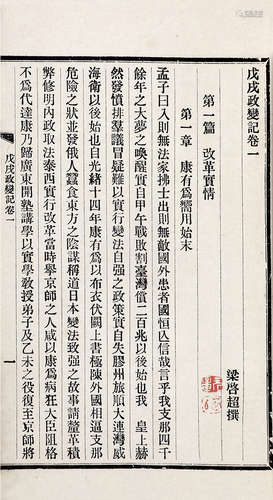 戊戌政變記卷一
梁啓超撰
第一篇 改革實情
第一章 康有爲嚮用始末
孟子曰入則無法家拂士出則無敵國外患者國恒亾信哉言乎我支那四千
餘年之大夢之喚醒實自甲午戰敗割臺灣償二百兆以後始也我 皇上赫
然發憤排羣議冒疑難以實行變法自强之政策實自失膠州旅順大連灣威
海衛以後始也自光緒十四年康有爲以布衣伏闕上書極陳外國相逼支那
危險之狀並發俄人蠶食東方之陰謀稱道日本變法致强之故事請釐革積
弊修明內政取法泰西實行改革當時舉京師之人咸以康爲病狂大臣阻格
不爲代達康乃歸廣東開塾講學以實學敎授弟子及乙未之役復至京師將
戊戌政變記卷一
一